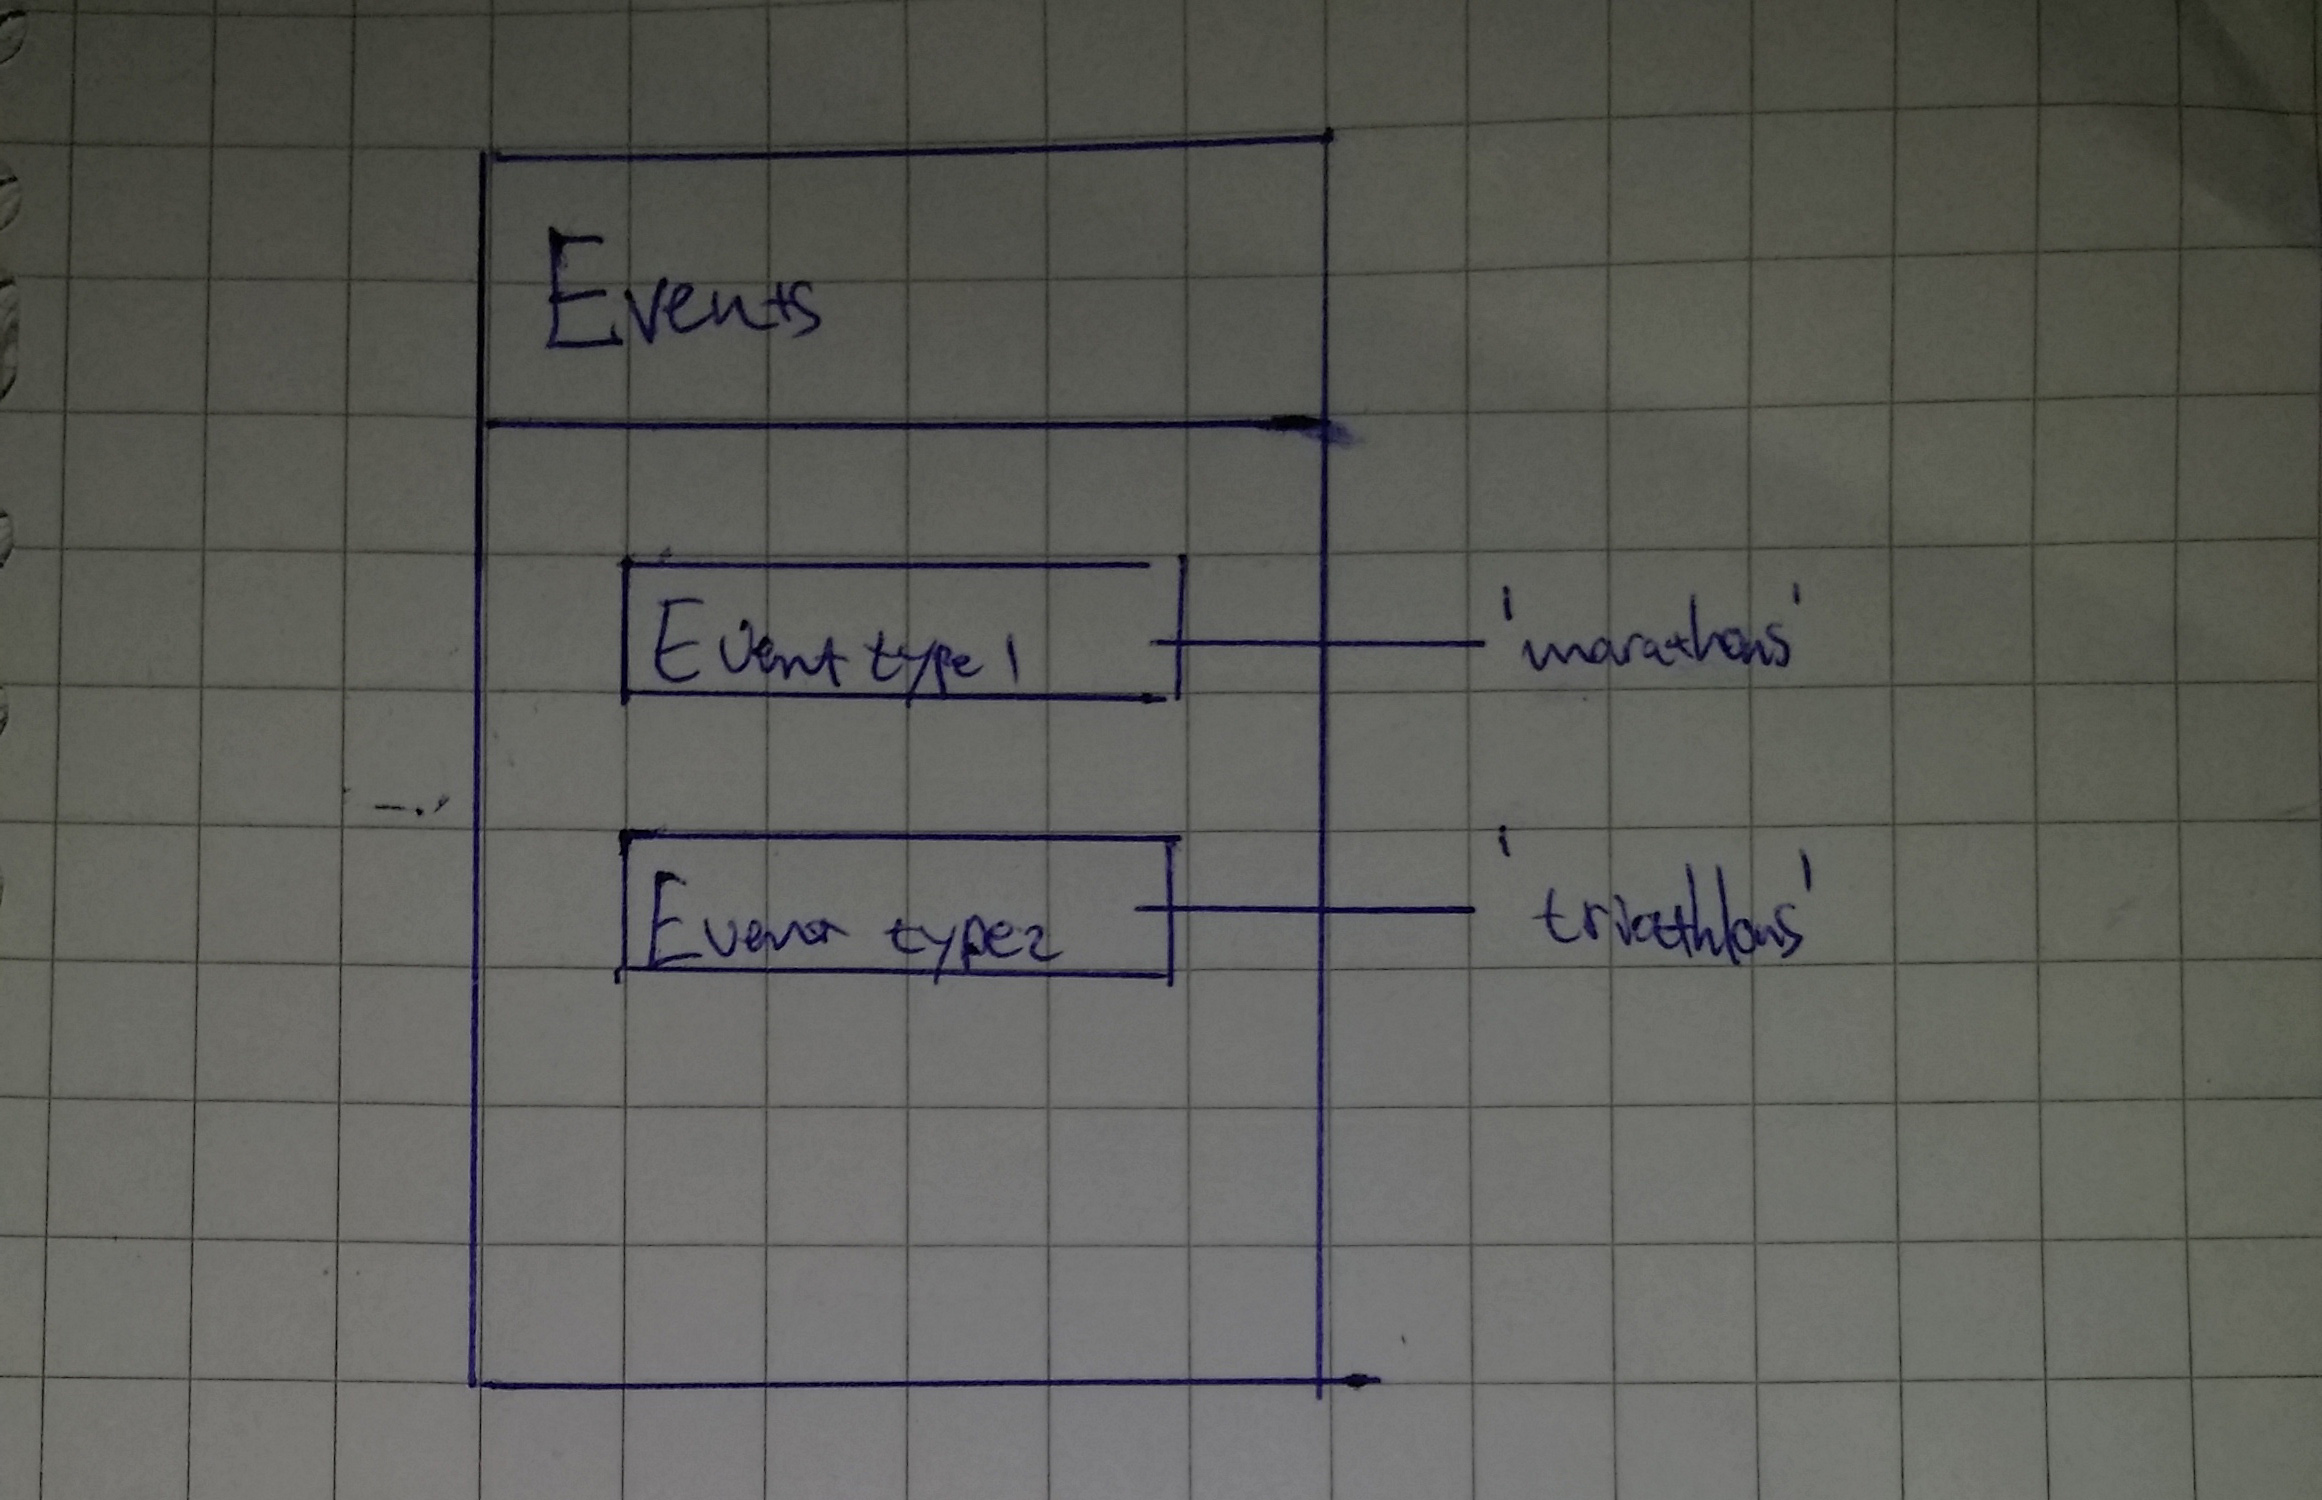 Events
Event type 1
'marathons'
Event type 2
'triathlons'